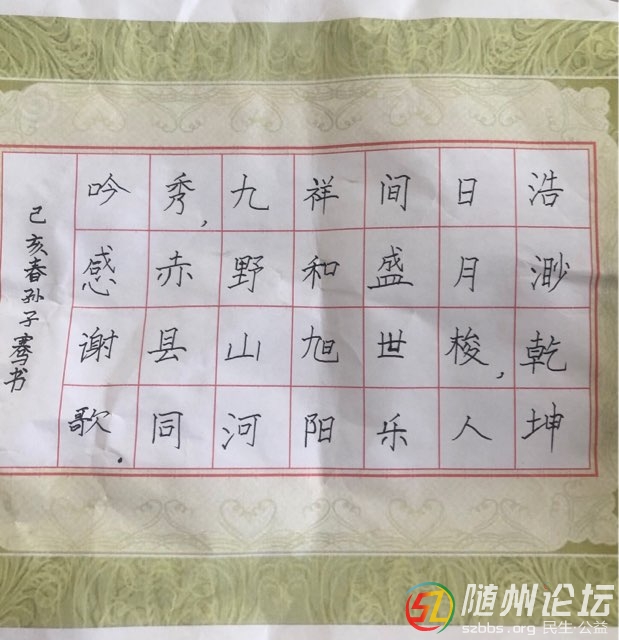 浩渺乾坤
日月梭，人
间盛世乐
祥和旭阳
九野山河
秀，赤县同
吟感谢歌。
己亥春孙子骞书
随州论坛
szbbs.org 民生·公益